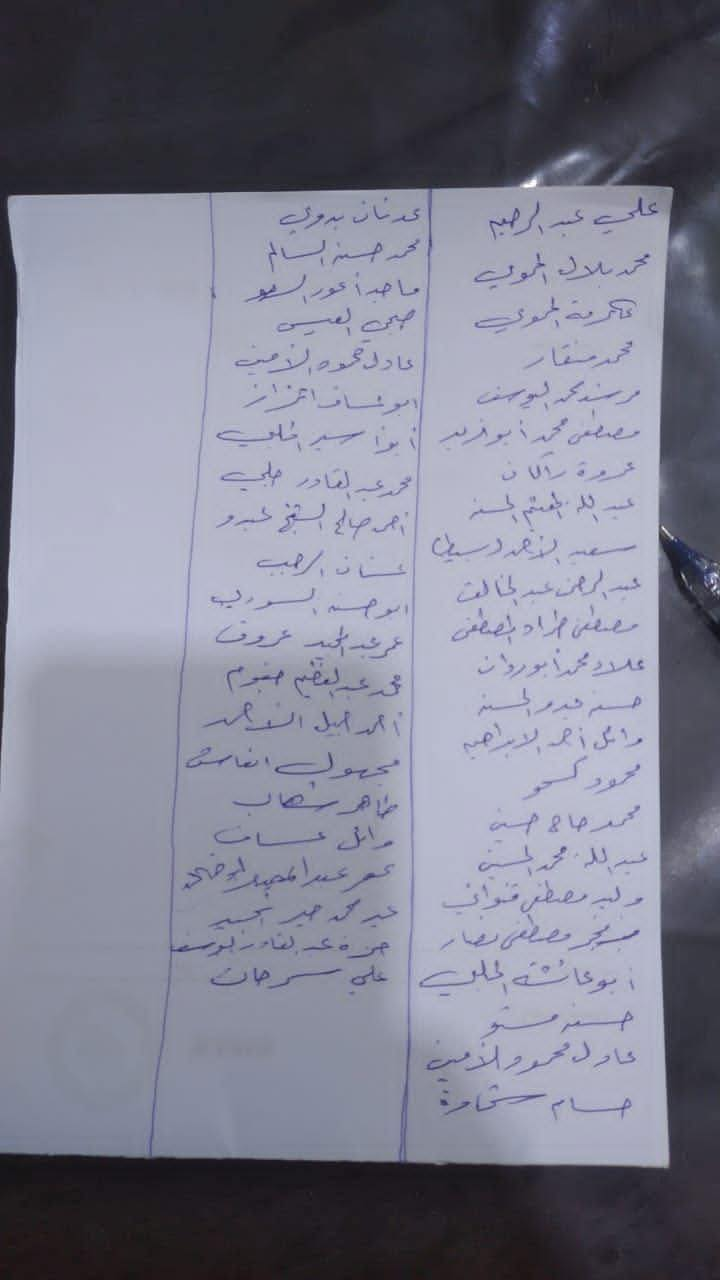 علي عبد الرحيم
محمد بلال الحموي
عكرمة الحموي
محمد منقار
مرشد محمد اليوسف
مصطفى محمد أبو فريد
عروة راكان
عبد الله الحسن
سعيد الأحمد
عبد الرحمن عبد الخالق
مصطفى طراد المصطفى
علاء محمد أبو روان
حسن عبدو الحسن
وائل أحمد الابراهيم
محمود كسحو
محمد حاج حسين
عبد الله محمد الحسين
وليد مصطفى قنواتي
مصطفى نصار
أبو عائشة الحلبي
حسن مستو
عادل محمود الأمين
حسام شحادة
عدنان بدوي
محمد حسن السالم
ماجد أعور
صبحي العيسى
عادل حمود الأمين
ابو عساف
أبو أسير الحلبي
محمد عبد القادر حلبي
أحمد صالح الشيخ عبدو
غسان الرجب
ابو حسن السوري
عمر عبد المجيد عروق
محمد عبد العظيم
أحمد خليل الأحمد
مجهول
طاهر شهاب
وائل عساف
عمر عبد المجيد
عبد محمد
حمزة عبد القادر اليوسف
علي سرحان